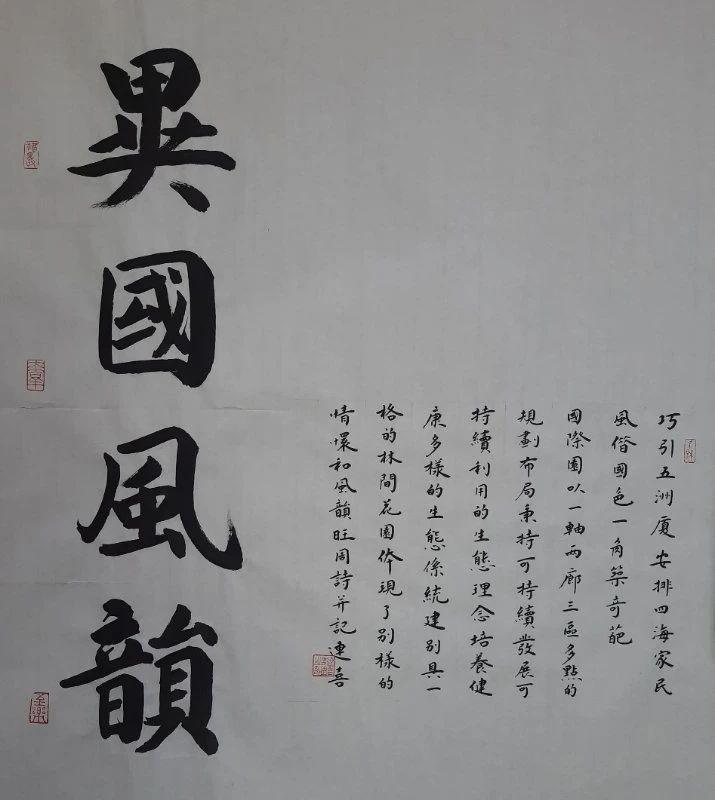 巧引五洲厦安排四海家民
風偕國色一角築奇葩
國際園以一軸兩廊三區多點的
規劃布局秉持可持續發展可
持續利用的生態理念培養健
康多樣的生態係統建別具一
格的林間花園体現了別樣的
情懷和風韻旺周詩并記連喜
異國風韻